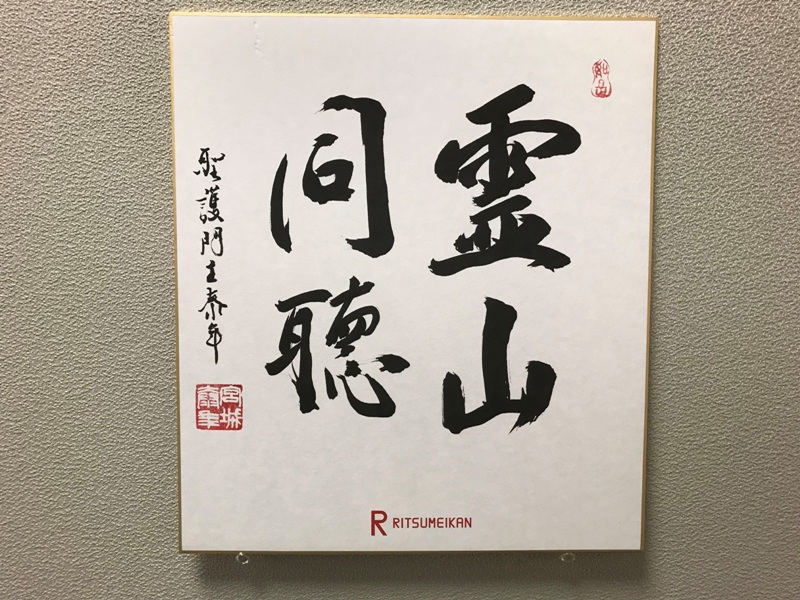 霊山
同聴
聖護門主泰年
宮城
泰年
RITSUMEIKAN